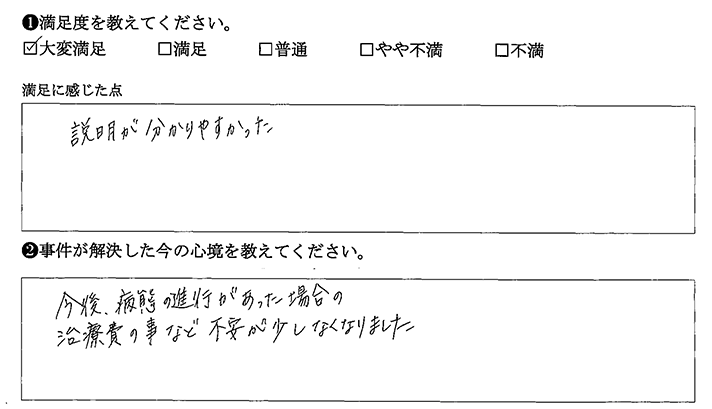 ❶満足度を教えてください。
☑大変満足 □満足 □普通 □やや不満 □不満
満足に感じた点
説明が分かりやすかった
❷事件が解決した今の心境を教えてください。
今後、病態の進行があった場合の
治療費の事など不安が少しなくなりました